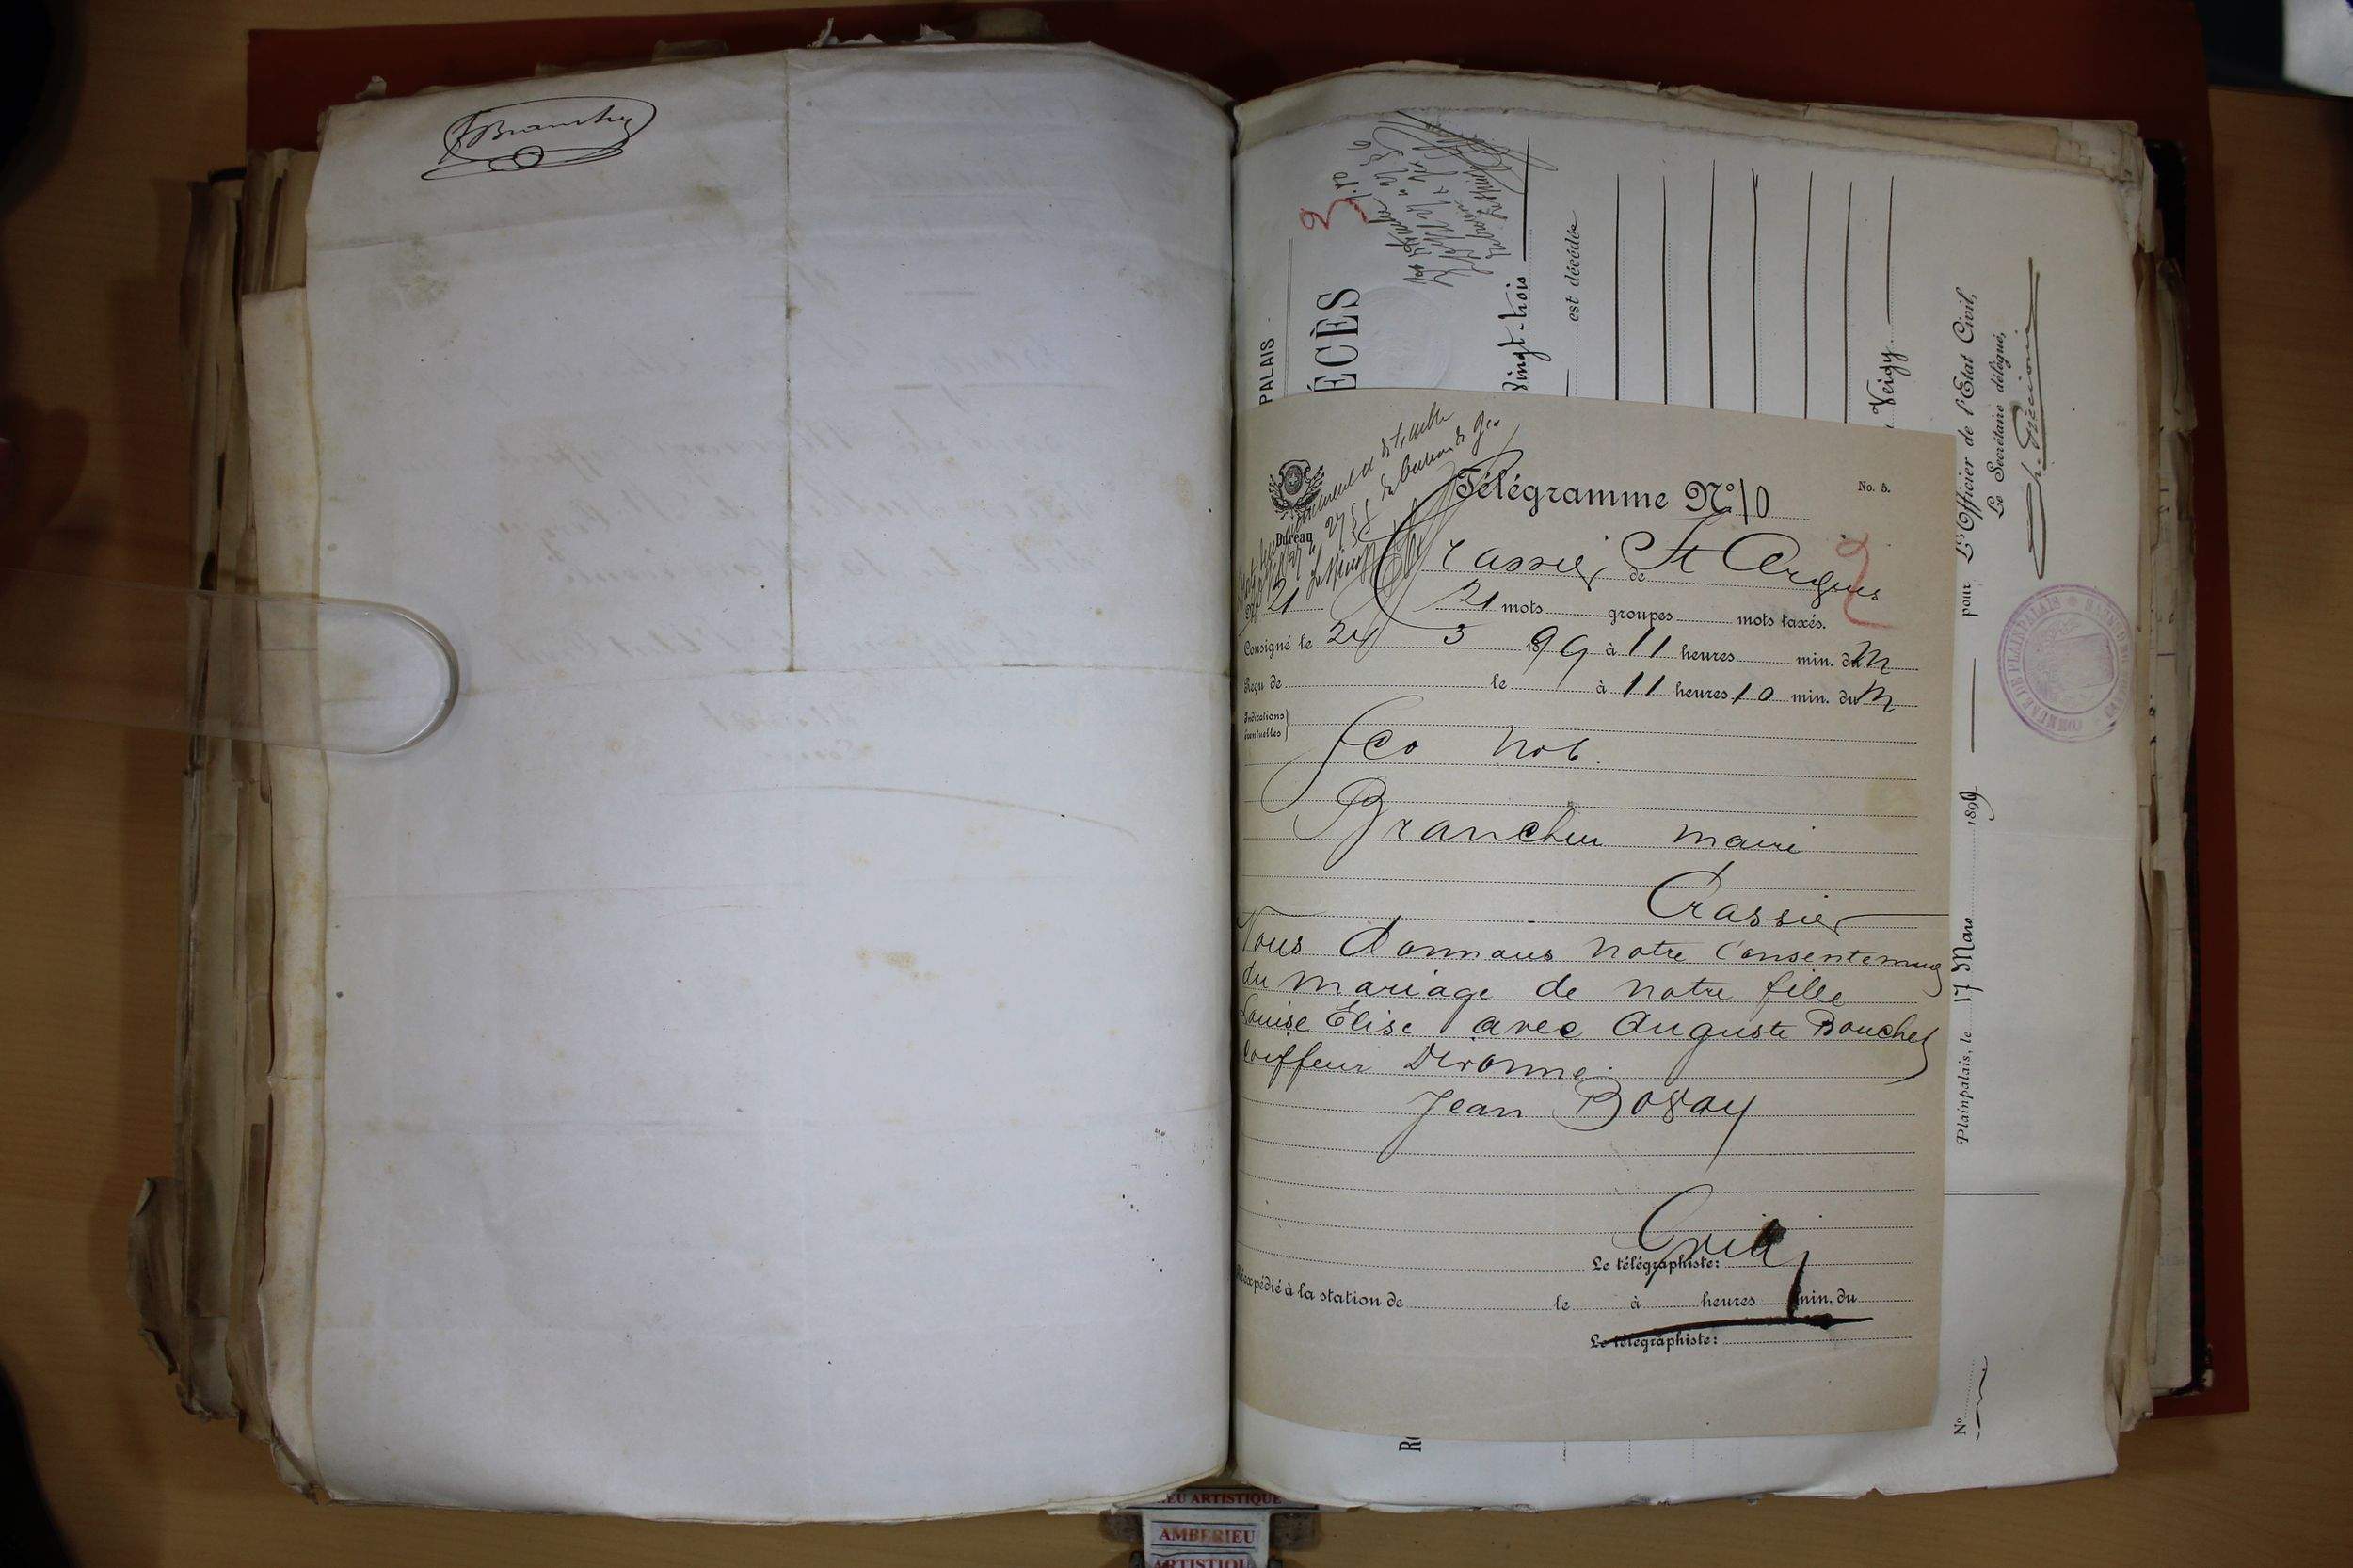 PALAIS
ÉCÈS
Vingt-trois
est décédée
Veigy
pour L'Officier de l'État Civil,
Le Secrétaire délégué,
Plainpalais, le 17 Mars 1899
N°
Télégramme N° 10
No. 5.
Bureau
Crassier de St Cergues
N° 21 21 mots groupes mots taxés.
Consigné le 24 3 1899 à 11 heures min. du M
Reçu de le à 11 heures 10 min. du M
Indications
éventuelles
Brancher maire
Crassier
Nous donnons notre Consentement
du mariage de notre fille
Louise Elise avec Auguste Bouchet
Coiffeur Divonne.
Jean
Le télégraphiste:
Réexpédié à la station de le à heures min. du
Le télégraphiste:
EU ARTISTIQUE
AMBERIEU
ARTISTIQU